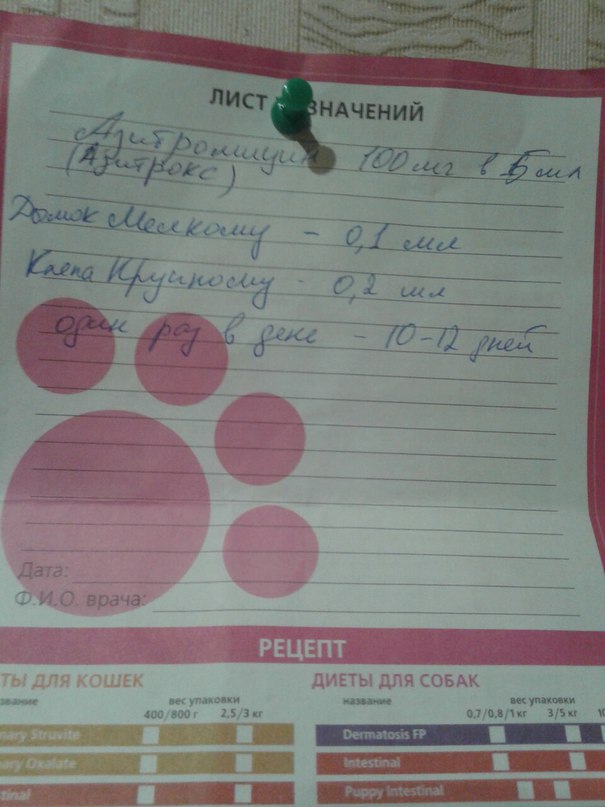 ЛИСТ ЗНАЧЕНИЙ
Азитромицин 100 мг в 5 мл
(Азитрокс)
Домок Мелкому - 0,1 мл
Клепа Крупному - 0,2 мл
один раз в день - 10-12 дней
Дата:
Ф.И.О. врача:
РЕЦЕПТ
ТЫ ДЛЯ КОШЕК
ДИЕТЫ ДЛЯ СОБАК
звание
вес упаковки
400/800 г
2,5/3 кг
название
вес упаковки
0,7/0,8/1 кг
3/5 кг
10
nary Struvite
Dermatosis FP
nary Oxalate
Intestinal
tinal
Puppy Intestinal